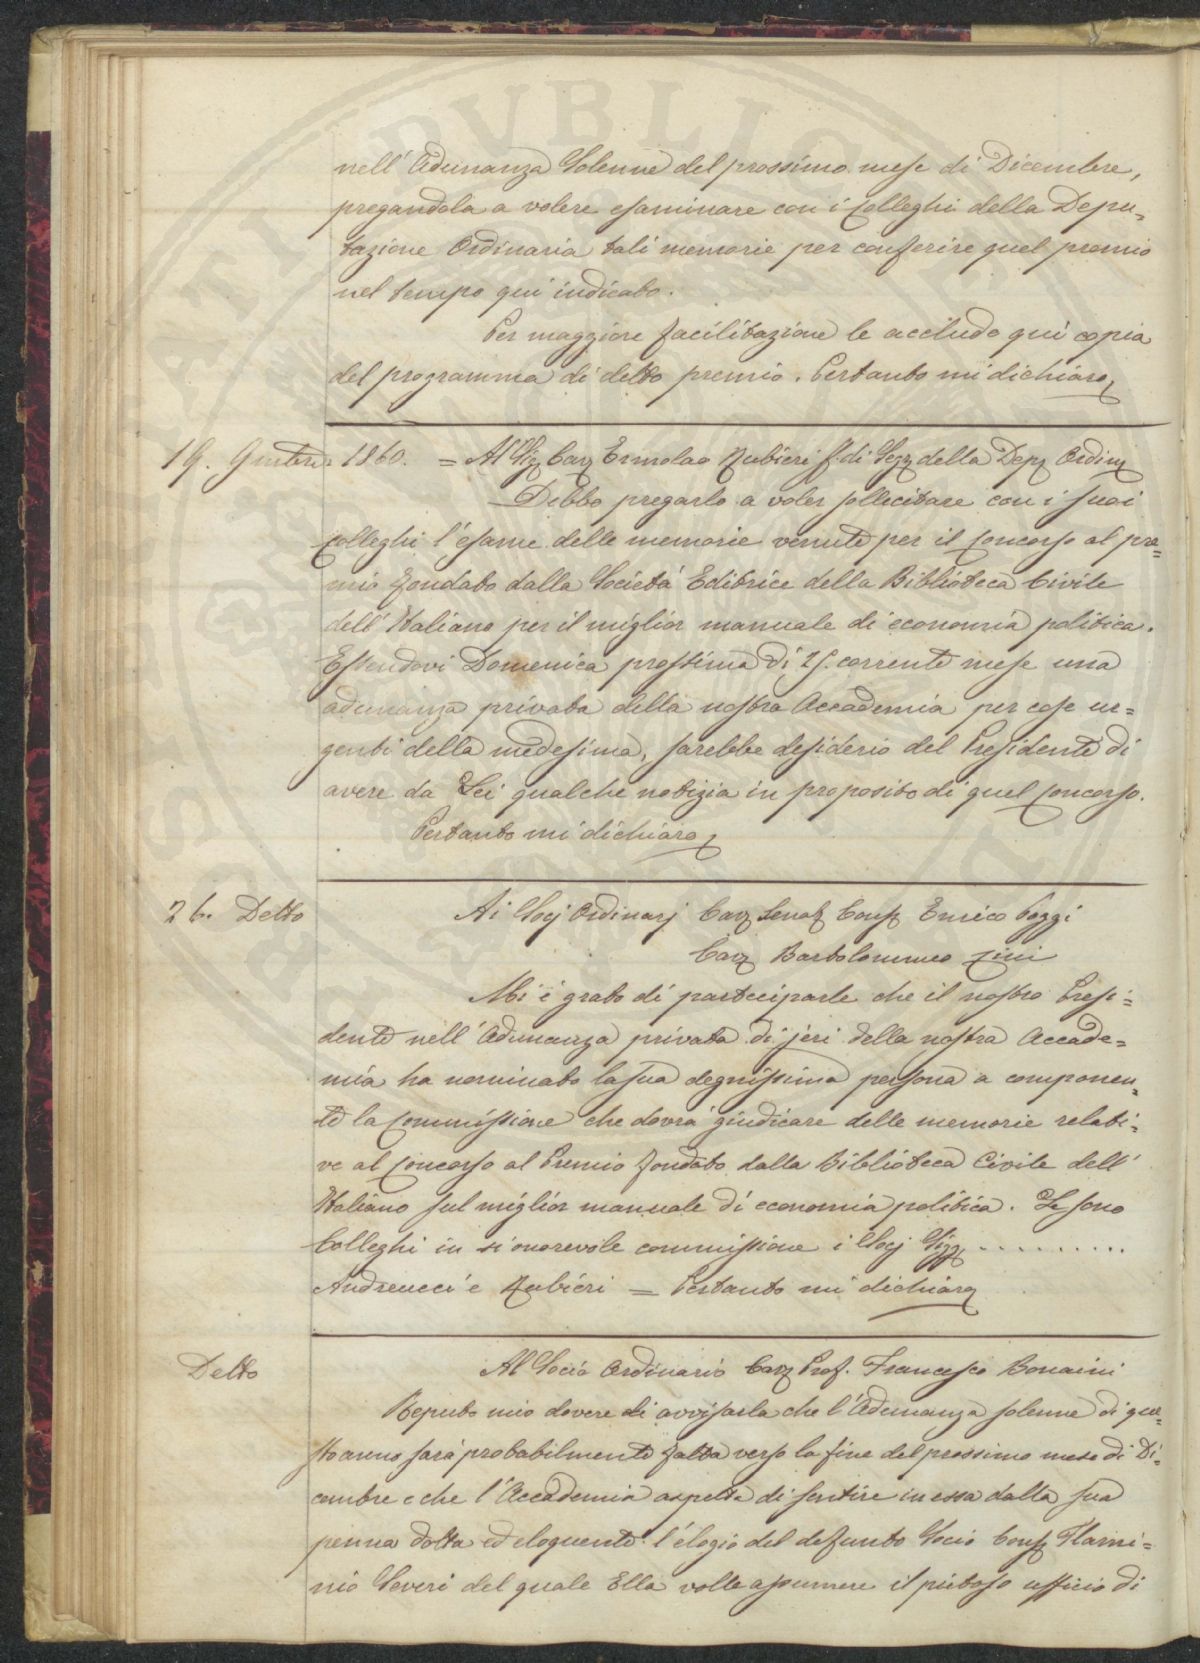 nell' Adunanza Solenne del prossimo mese di Dicembre,
pregandola a volere esaminare con i Colleghi della Depu=
tazione Ordinaria tali memorie per conferire quel premio
nel tempo quì indicato.
Per maggiore facilitazione le accludo quì copia
del programma di detto premio. Pertanto mi dichiaro
19. 9mbre 1860. = Al Sig. Cav. Ermolao Rubieri ff. di Seg. della Dep. Ordin.
Debbo pregarlo a voler sollecitare con i suoi
Colleghi l'esame delle memorie venute per il Concorso al pre=
mio fondato dalla Società Editrice della Biblioteca Civile
dell' Italiano per il miglior manuale di economia politica.
Essendovi Domenica prossima dì 25. corrente mese una
adunanza privata della nostra Accademia per cose ur=
genti della medesima, sarebbe desiderio del Presidente di
avere da Lei qualche notizia in proposito di quel Concorso.
Pertanto mi dichiaro
26. Detto
Ai Socj Ordinarj Cav. Senat. Cons. Enrico Poggi
Cav. Bartolommeo Cini
Mi è grato di parteciparle che il nostro Presi=
dente nell' Adunanza privata di jeri della nostra Accade=
mia ha nominato la sua degnissima persona a componen=
te la Commissione che dovrà giudicare delle memorie relati=
ve al Concorso al Premio fondato dalla Biblioteca Civile dell'
Italiano sul miglior manuale di economia politica. Le sono
Colleghi in sì onorevole commissione i Socj Sigg. ..........
Andreucci e Rubieri = Pertanto mi dichiaro
Detto
Al Socio Ordinario Cav. Prof. Francesco Bonaini
Reputo mio dovere di avvisarla che l'Adunanza solenne di que=
sto anno sarà probabilmente fatta verso la fine del prossimo mese di Di=
cembre e che l'Accademia aspetta di sentire in essa dalla sua
penna dotta ed eloquente l'elogio del defunto Socio Cons. Flami=
nio Severi del quale Ella volle assumere il pietoso ufficio di